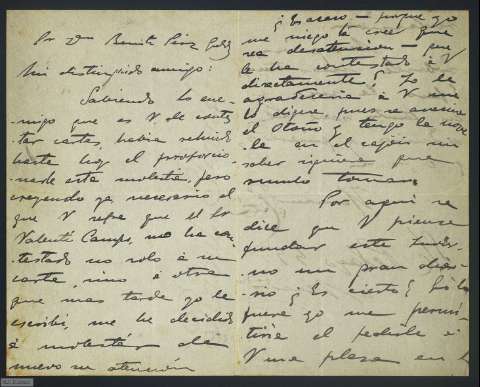 Sr Dn Benito Pérez Galdós
Mi distinguido amigo:
Sabiendo lo ene-
migo que es V de contes-
tar cartas, había rehuido
hasta hoy el proporcio-
narle esta molestia, pero
creyendo ya necesario el
que V sepa que el Sr
Valentí Camp, no ha con-
testado no solo à mi
carta, sino à otra
que mas tarde yo le
escribí, me he decidido
à molestar de
nuevo su atención
¿Es acaso — porque yo
me niego à creer que
sea desatención — que
le ha contestado à V
directamente? Yo le
agradecería à V me
lo dijera, pues se avecina
el Otoño y tengo la nove-
la en el cajón sin
saber siquiera que
rumbo tomar.
Por aquí se
dice que V piensa
fundar este
no un gran dia-
rio ¿Es cierto? Si lo
fuera yo me permi-
tiría el pedirle à
V una plaza en